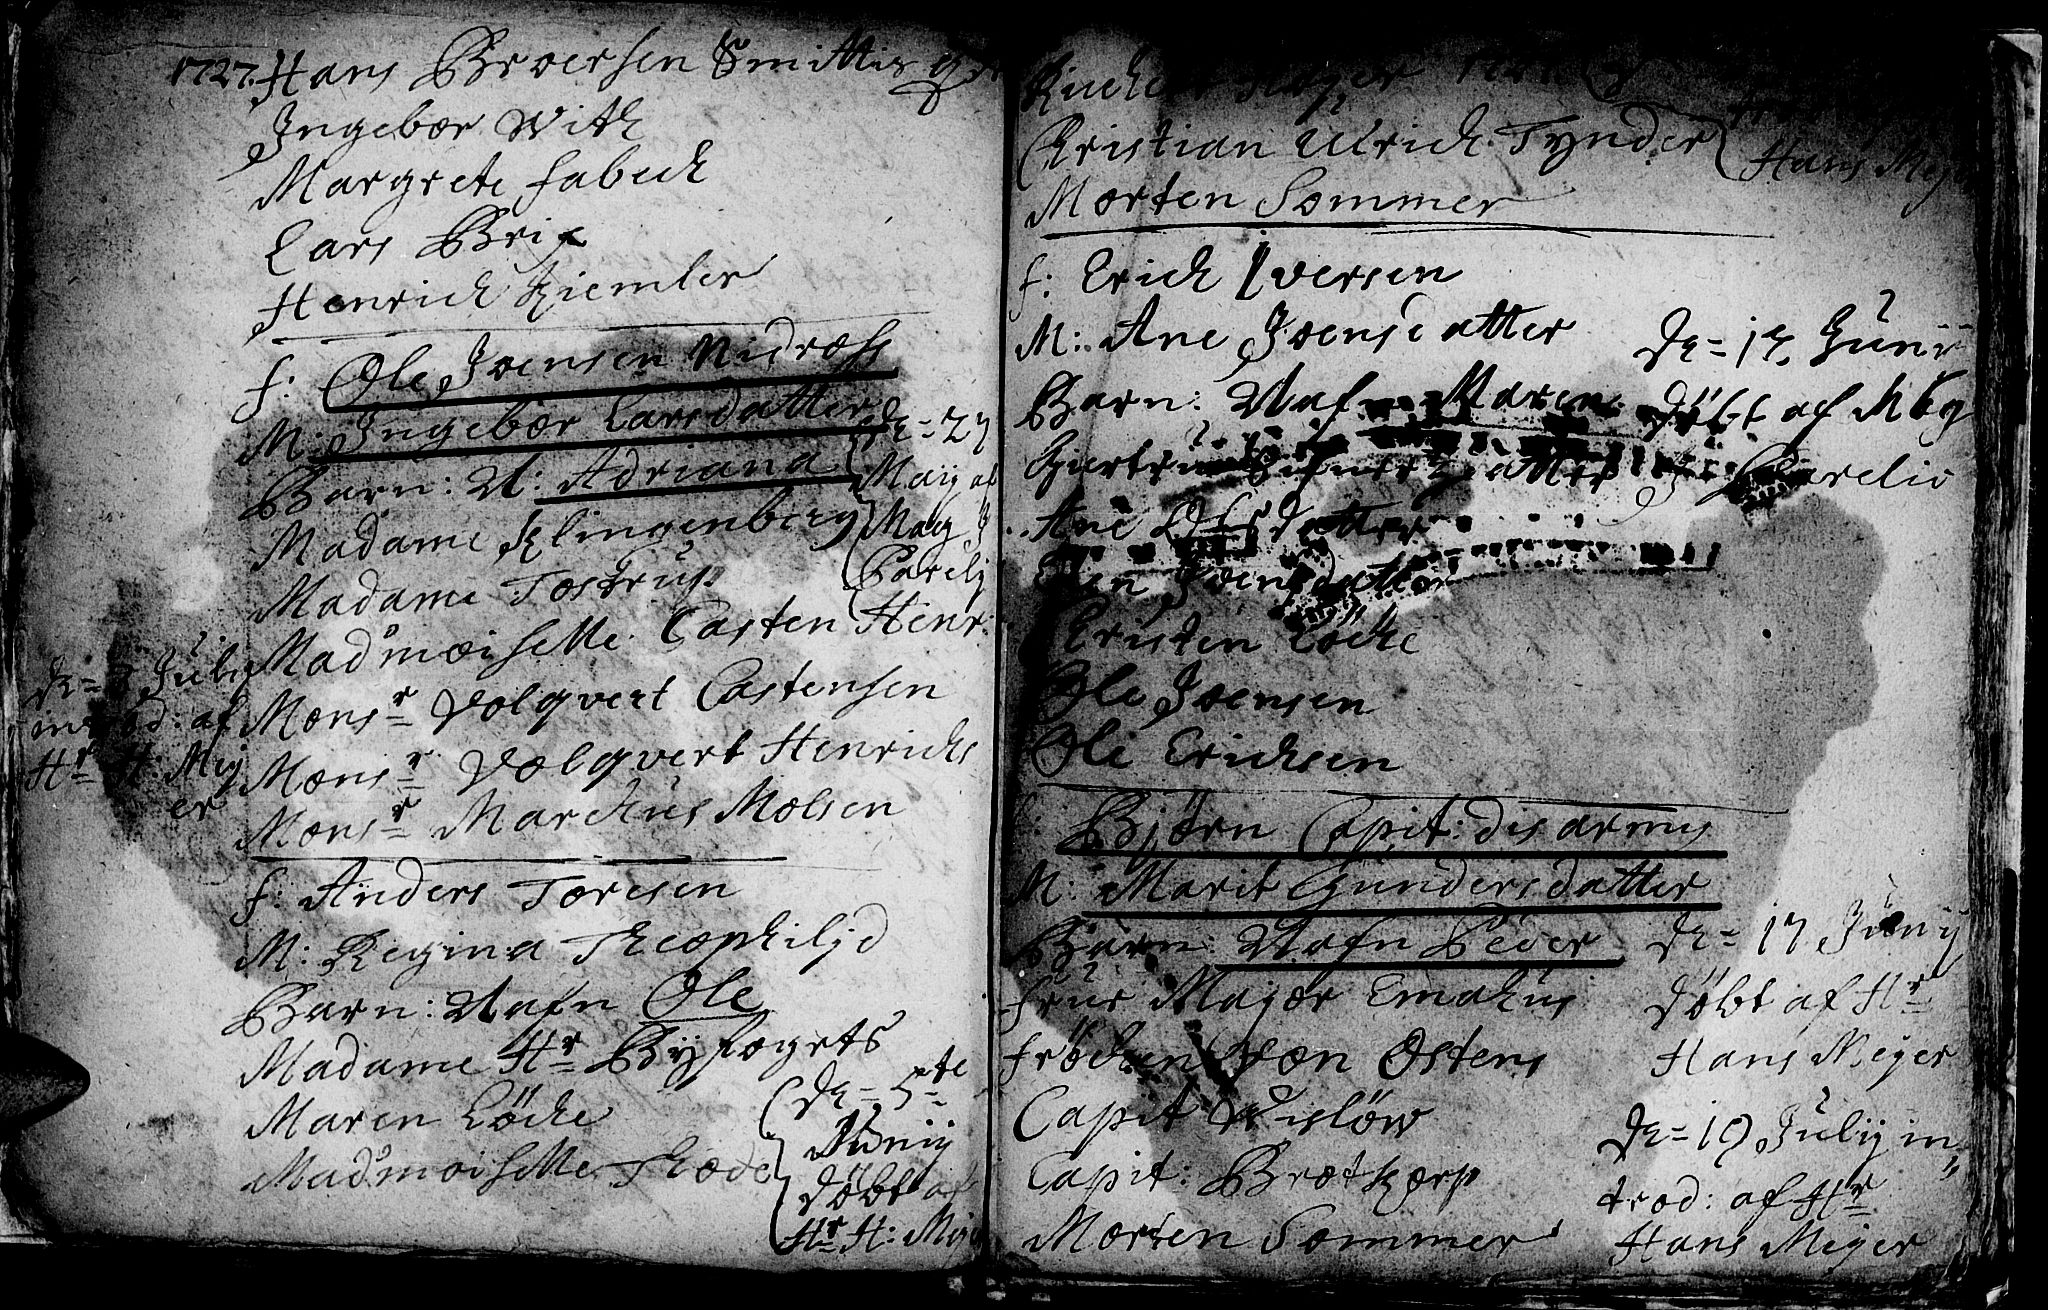 1727. Hans Broersen Smittis
Ingebor With
Margrete Fabech
Lars Brix
Henrich Kiemler
F: Ole Joensen Nidrøss
M: Ingebor Larsdatter
Barn: U: Adriana
Madame Klingenberg
Madame Tostrup
Madmoiselle Casten Henr:
Monsr Volqvert Castensen
Monsr Volqvert Henrichs
Monsr Marchus Molsen
de= 27
Maij af
Mag J
Parelij
de= 3 Julij
introd: af
Hr H: Mey
er
F: Anders Toresen
M: Regina Theophiljd
Barn: Nafn Ole
Madame Hr Byfogets
Maren Löche
Madmoiselle Thode
de= 5te
Junij
döbt af
Hr H: Mey
Hans Mey
Christian Ulrich Tynder
Morten Sommer
F: Erich Iversen
M: Ane Joensdatter
Barn: Nafn Maren
datter
Ane Olsdatter
Joensdatter
Christen Löche
Ole Joensen
Ole Erichsen
de= 17 Junij
döbt af Mag
Parelio
F: Bjørn Capit: dis armis
M: Marit Gundersdatter
Barn Nafn Peder
Frur Major Emahus
Fröchen von Ostens
Capit Wislöw
Capit: Brotkorp
Morten Sommer
de= 17 Junij
döbt af Hr
Hans Meyer
de= 19 Julij in
trod: af Hr
Hans Meyer